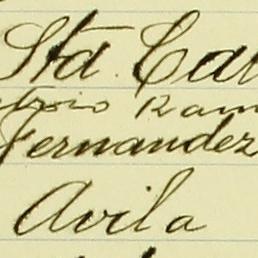 Sta. Cat
Ram
Fernandez
Avila